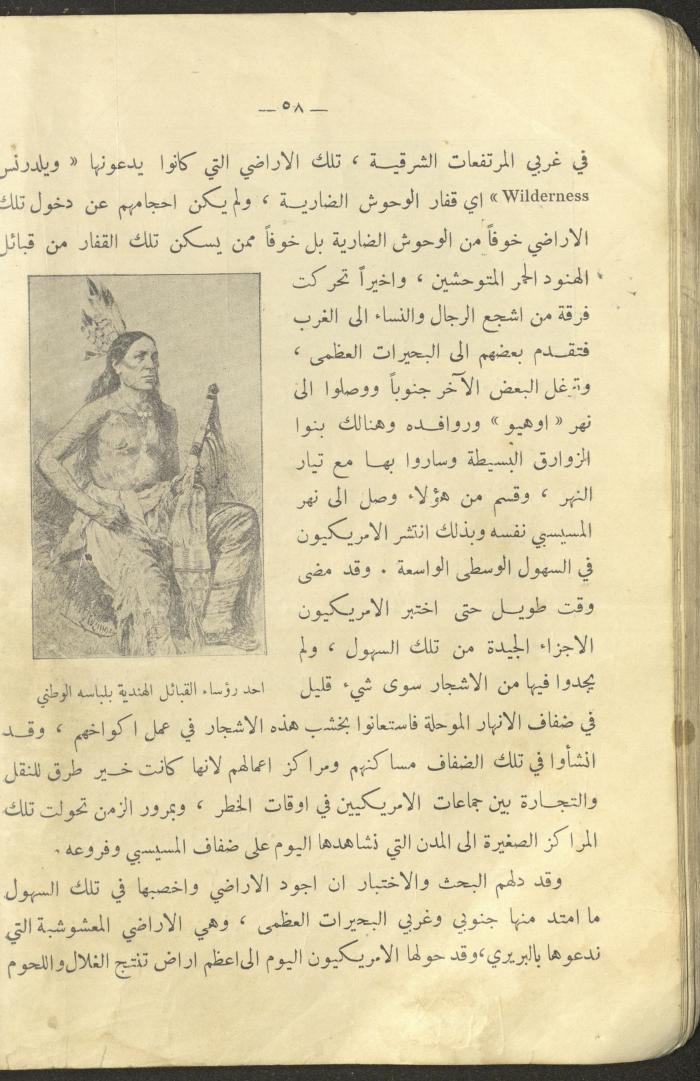 — ٥٨ —
في غربي المرتفعات الشرقية ، تلك الاراضي التي كانوا يدعونها « ويلدرنس
Wilderness » اي قفار الوحوش الضارية ، ولم يكن احجامهم عن دخول تلك
الاراضي خوفاً من الوحوش الضارية بل خوفاً ممن يسكن تلك القفار من قبائل
الهنود الحمر المتوحشين ، واخيراً تحركت
فرقة من اشجع الرجال والنساء الى الغرب
فتقدم بعضهم الى البحيرات العظمى ،
وتوغل البعض الآخر جنوباً ووصلوا الى
نهر « اوهيو » وروافده وهنالك بنوا
الزوارق البسيطة وساروا بها مع تيار
النهر ، وقسم من هؤلاء وصل الى نهر
المسيسبي نفسه وبذلك انتشر الامريكيون
في السهول الوسطى الواسعة . وقد مضى
وقت طويل حتى اختبر الامريكيون
الاجزاء الجيدة من تلك السهول ، ولم
يجدوا فيها من الاشجار سوى شيء قليل
احد رؤساء القبائل الهندية بلباسه الوطني
في ضفاف الانهار الموحلة فاستعانوا بخشب هذه الاشجار في عمل اكواخهم ، وقد
انشأوا في تلك الضفاف مساكنهم ومراكز اعمالهم لانها كانت خير طرق للنقل
والتجارة بين جماعات الامريكيين في اوقات الخطر ، وبمرور الزمن تحولت تلك
المراكز الصغيرة الى المدن التي نشاهدها اليوم على ضفاف المسيسبي وفروعه .
وقد دلهم البحث والاختبار ان اجود الاراضي واخصبها في تلك السهول
ما امتد منها جنوبي وغربي البحيرات العظمى ، وهي الاراضي المعشوشبة التي
ندعوها بالبريري ، وقد حولها الامريكيون اليوم الى اعظم اراض تنتج الغلال واللحوم